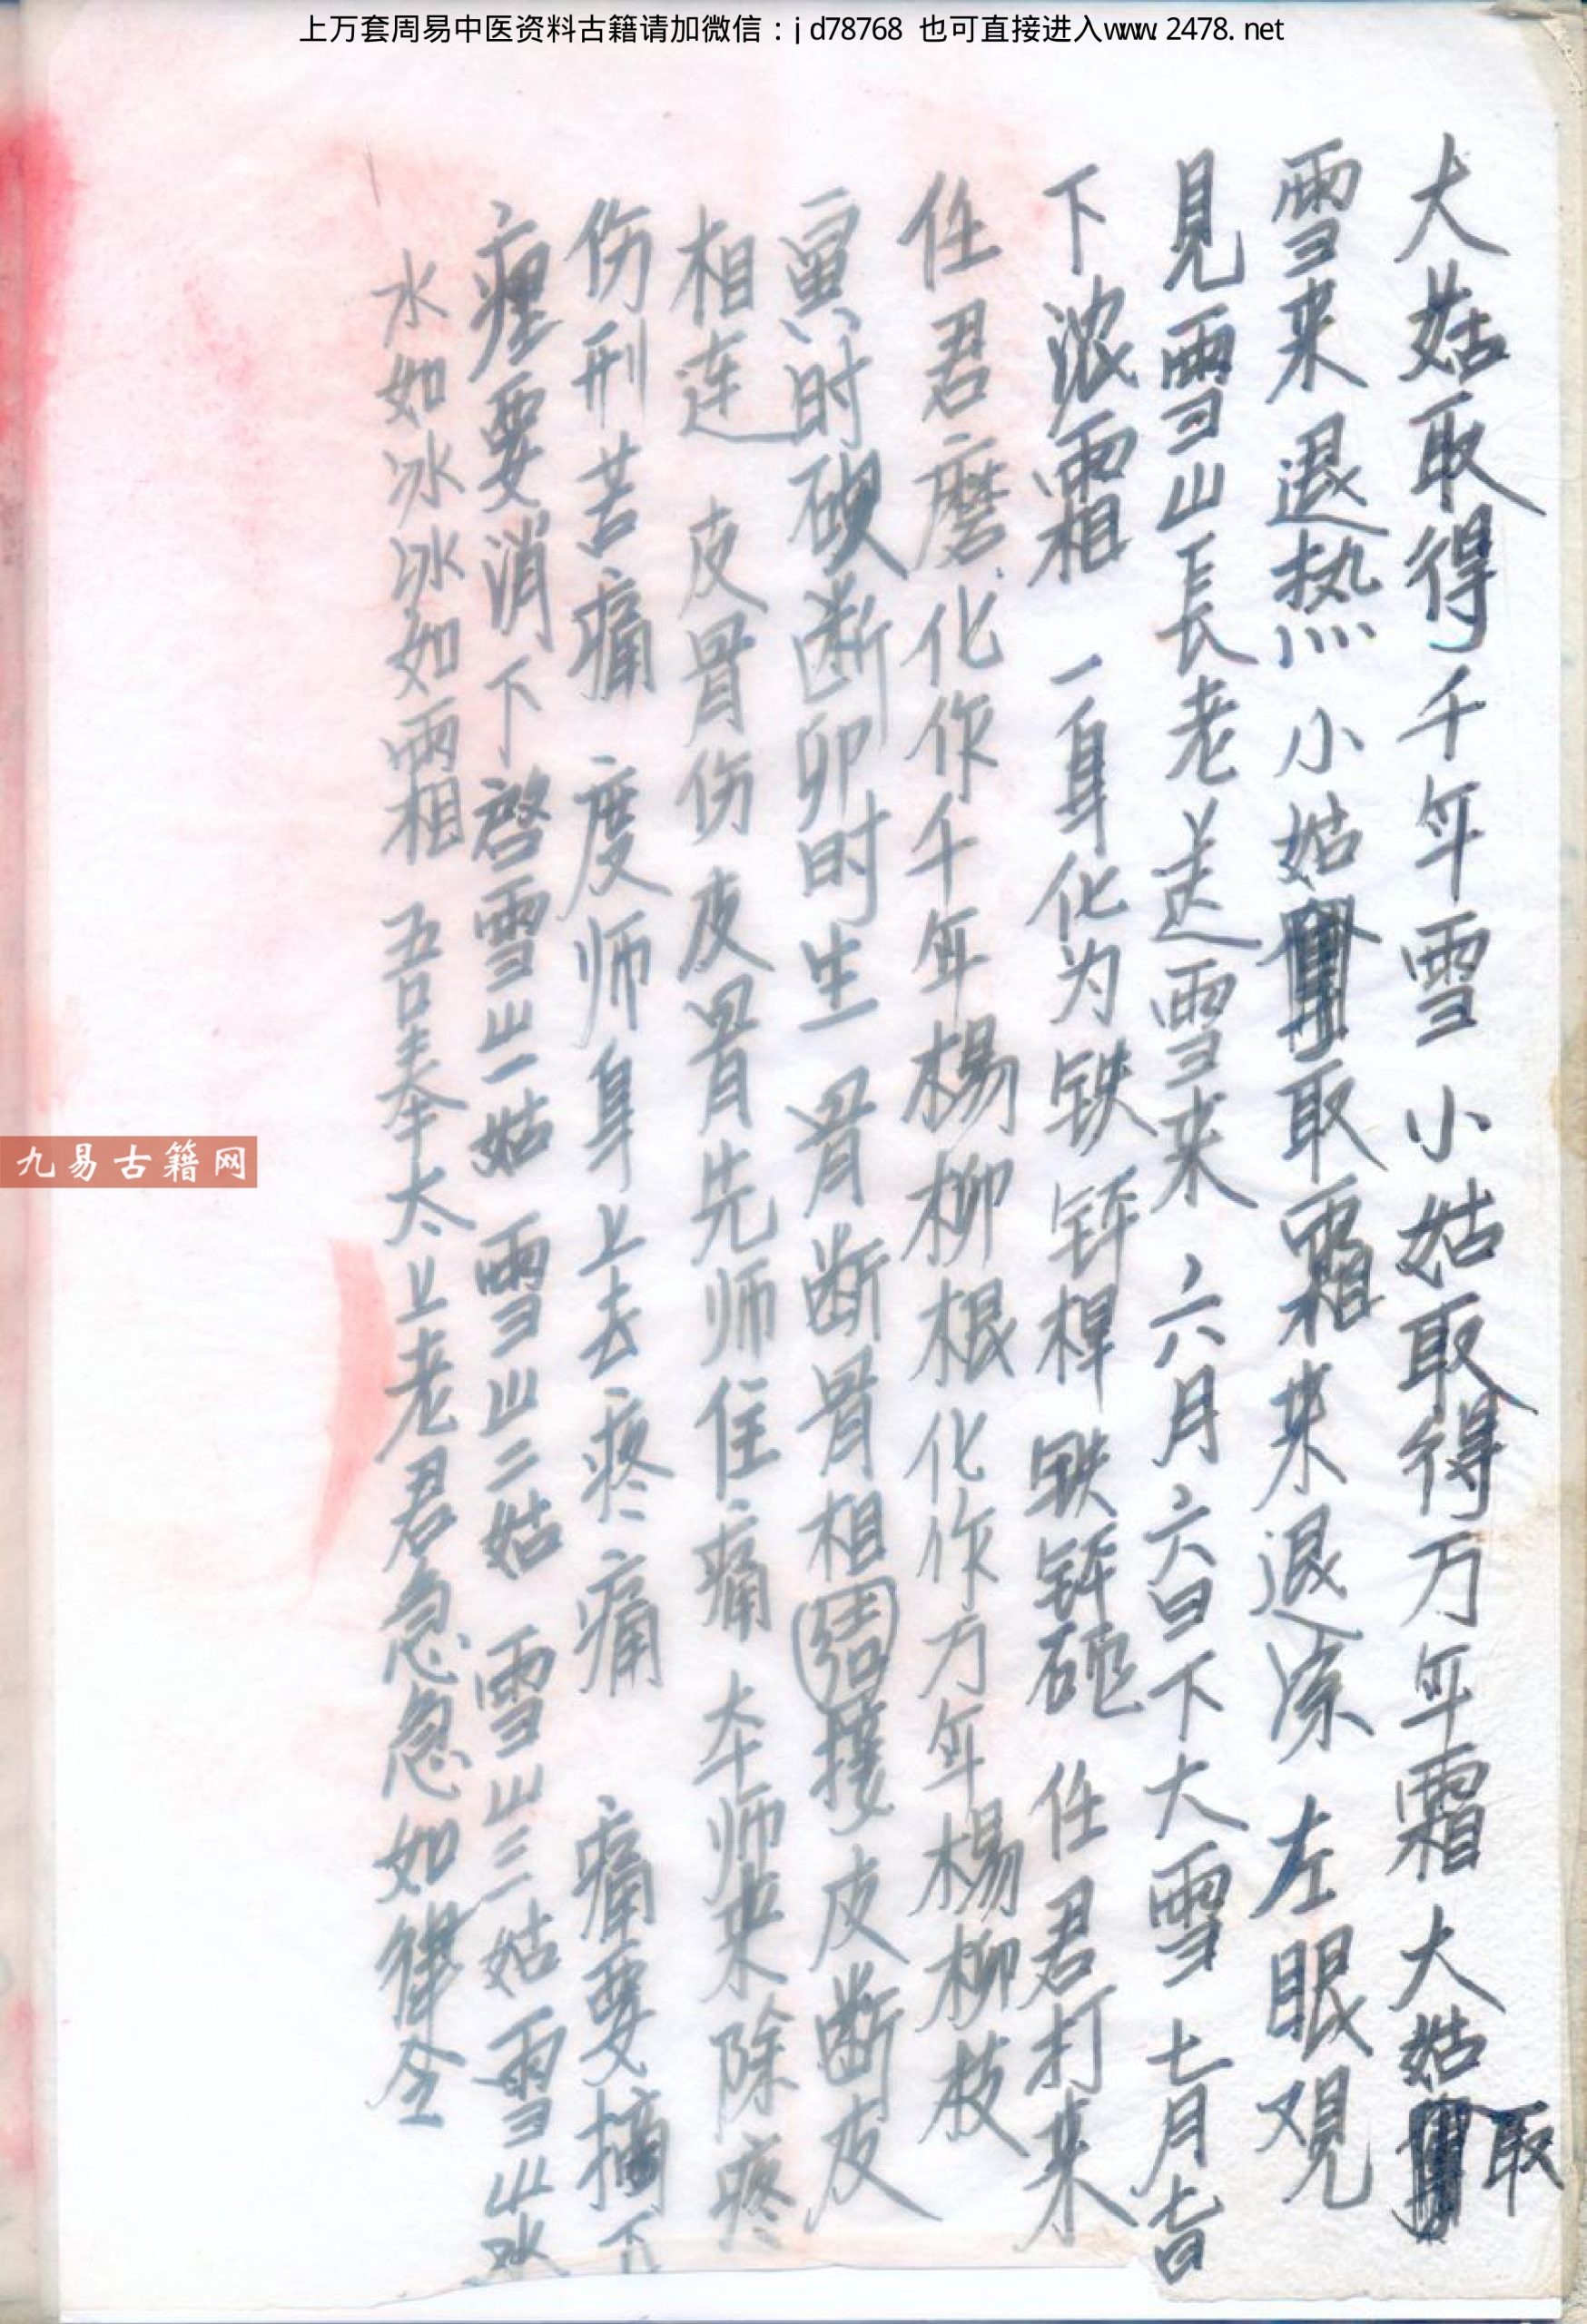 上万套周易中医资料古籍请加微信：jd78768 也可直接进入www.2478.net
大姑取得千年雪 小姑取得万年霜 大姑取
雪来退热 小姑取霜来退凉 左眼观
見雪山長老送雪来 六月六日下大雪 七月七日
下浓霜 一身化为铁 任君打来
任君磨 化作千年楊柳根 化作万年楊柳枝
寅时砍断卯时生 骨断骨相结接 皮断皮
相连 皮骨伤皮骨先师住痛 本师来除疼
伤刑苦痛 度师身上去疼痛 痛要摘下
要消下 啓雪山一姑 雪山二姑 雪山三姑 雪山水
水如冰冰如霜 吾奉太上老君急急如律令
九易古籍网